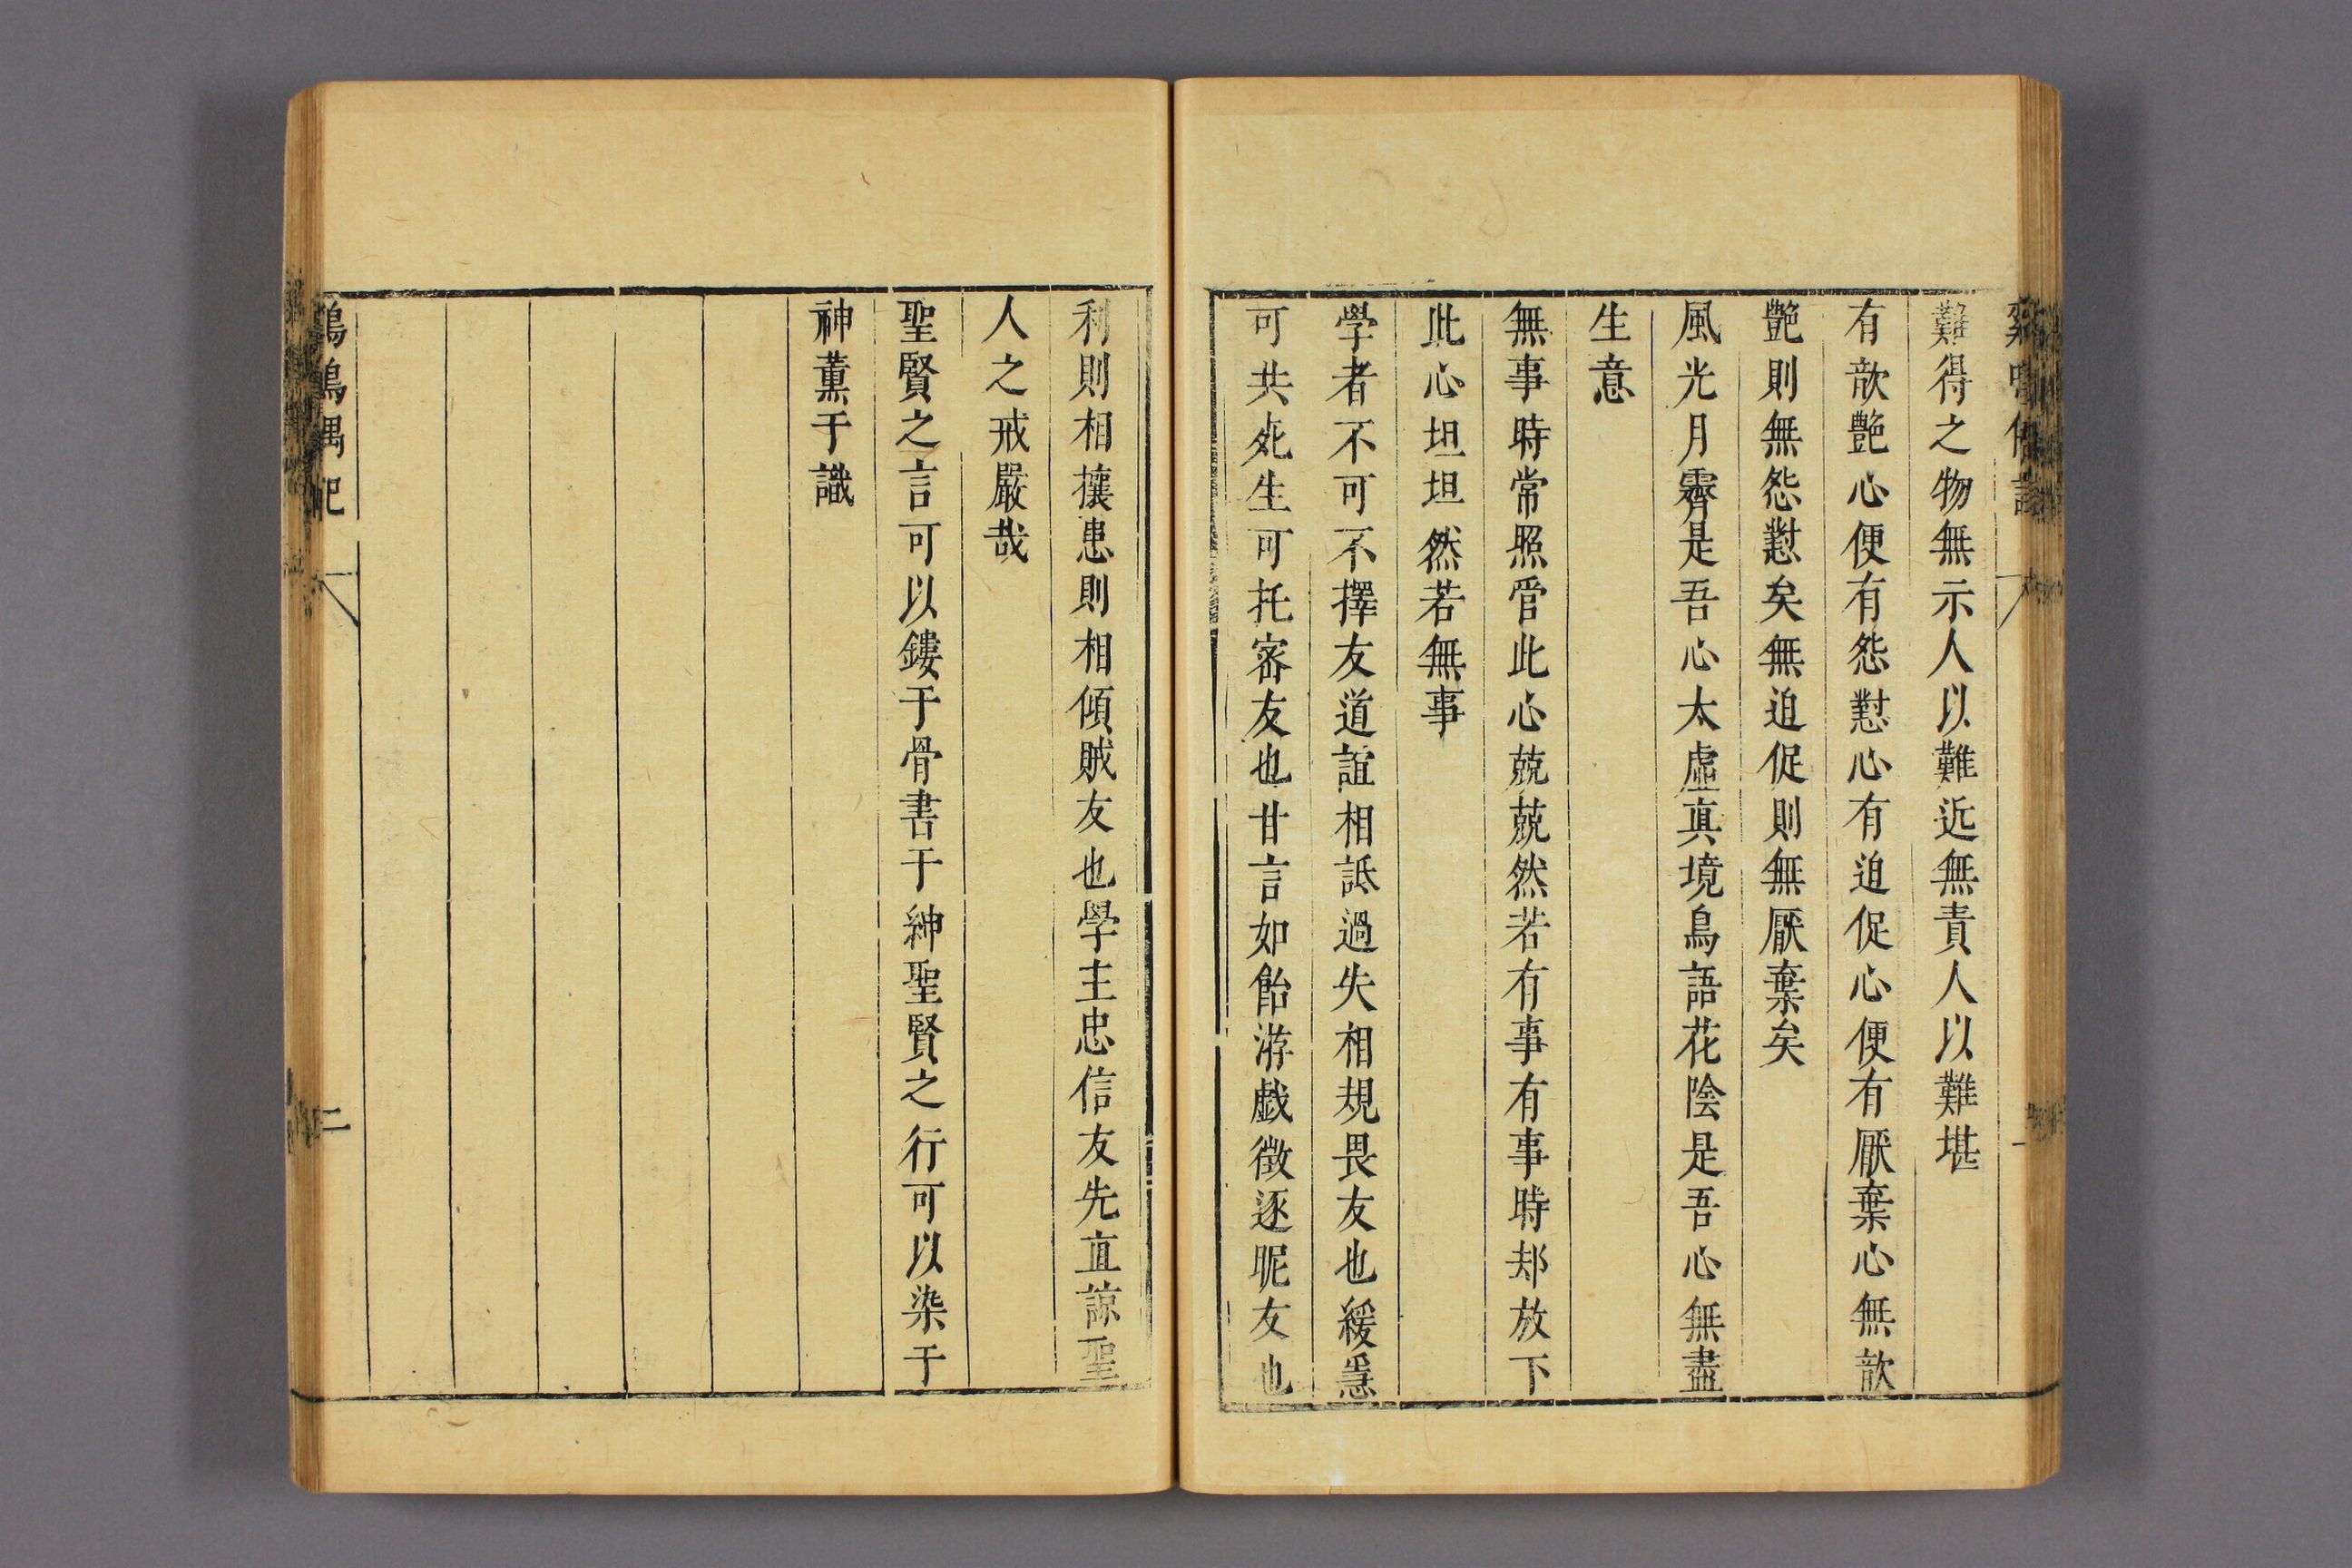 難得之物無示人以難近無責人以難堪
有歆艶心便有怨懟心有迫促心便有厭棄心無歆
艶則無怨懟矣無迫促則無厭棄矣
風光月霽是吾心太虛真境鳥語花陰是吾心無盡
生意
無事時常照管此心兢兢然若有事有事時却放下
此心坦坦然若無事
學者不可不擇友道誼相詆過失相規畏友也緩急
可共死生可托密友也甘言如飴游戲徵逐昵友也
利則相攘患則相傾賊友也學主忠信友先直諒聖
人之戒嚴哉
聖賢之言可以鏤于骨書于紳聖賢之行可以染于
神薰于識
鷄鳴偶記
二